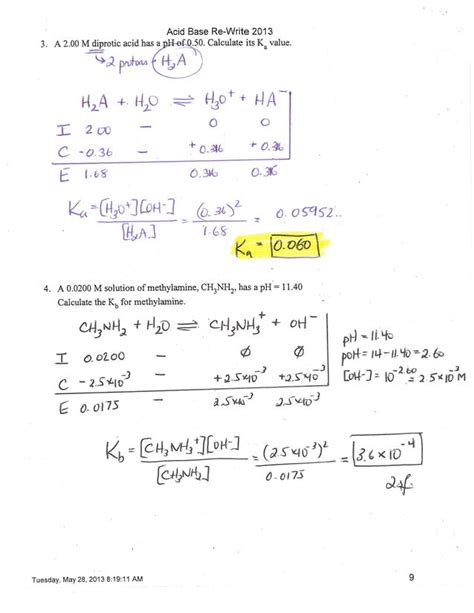 Acid Base Re-Write 2013
3. A 2.00 M diprotic acid has a pH of 0.50. Calculate its Kₐ value.
↳ 2 protons (H₂A)
H₂A + H₂O ⇌ H₃O⁺ + HA⁻
I 2.00 – 0 0
C -0.36 – +0.316 +0.316
E 1.68 0.316 0.316
Ka = [H₃O⁺][OH⁻] / [H₂A] = (0.316)² / 1.68 = 0.05952..
Ka = 0.060
4. A 0.0200 M solution of methylamine, CH₃NH₂, has a pH = 11.40
Calculate the K_b for methylamine.
CH₃NH₂ + H₂O ⇌ CH₃NH₃⁺ + OH⁻
pH = 11.40
I 0.0200 Ø Ø
pOH = 14 - 11.40 = 2.60
C - 2.5x10⁻³ +2.5x10⁻³ +2.5x10⁻³
[OH⁻] = 10⁻²·⁶⁰ = 2.5x10⁻³ M
E 0.0175 2.5x10⁻³ 2.5x10⁻³
K_b = [CH₃NH₃⁺][OH⁻] / [CH₃NH₂] = (2.5x10⁻³)² / 0.0175 = 3.6 x 10⁻⁴
2sf.
Tuesday, May 28, 2013 8:19:11 AM
9